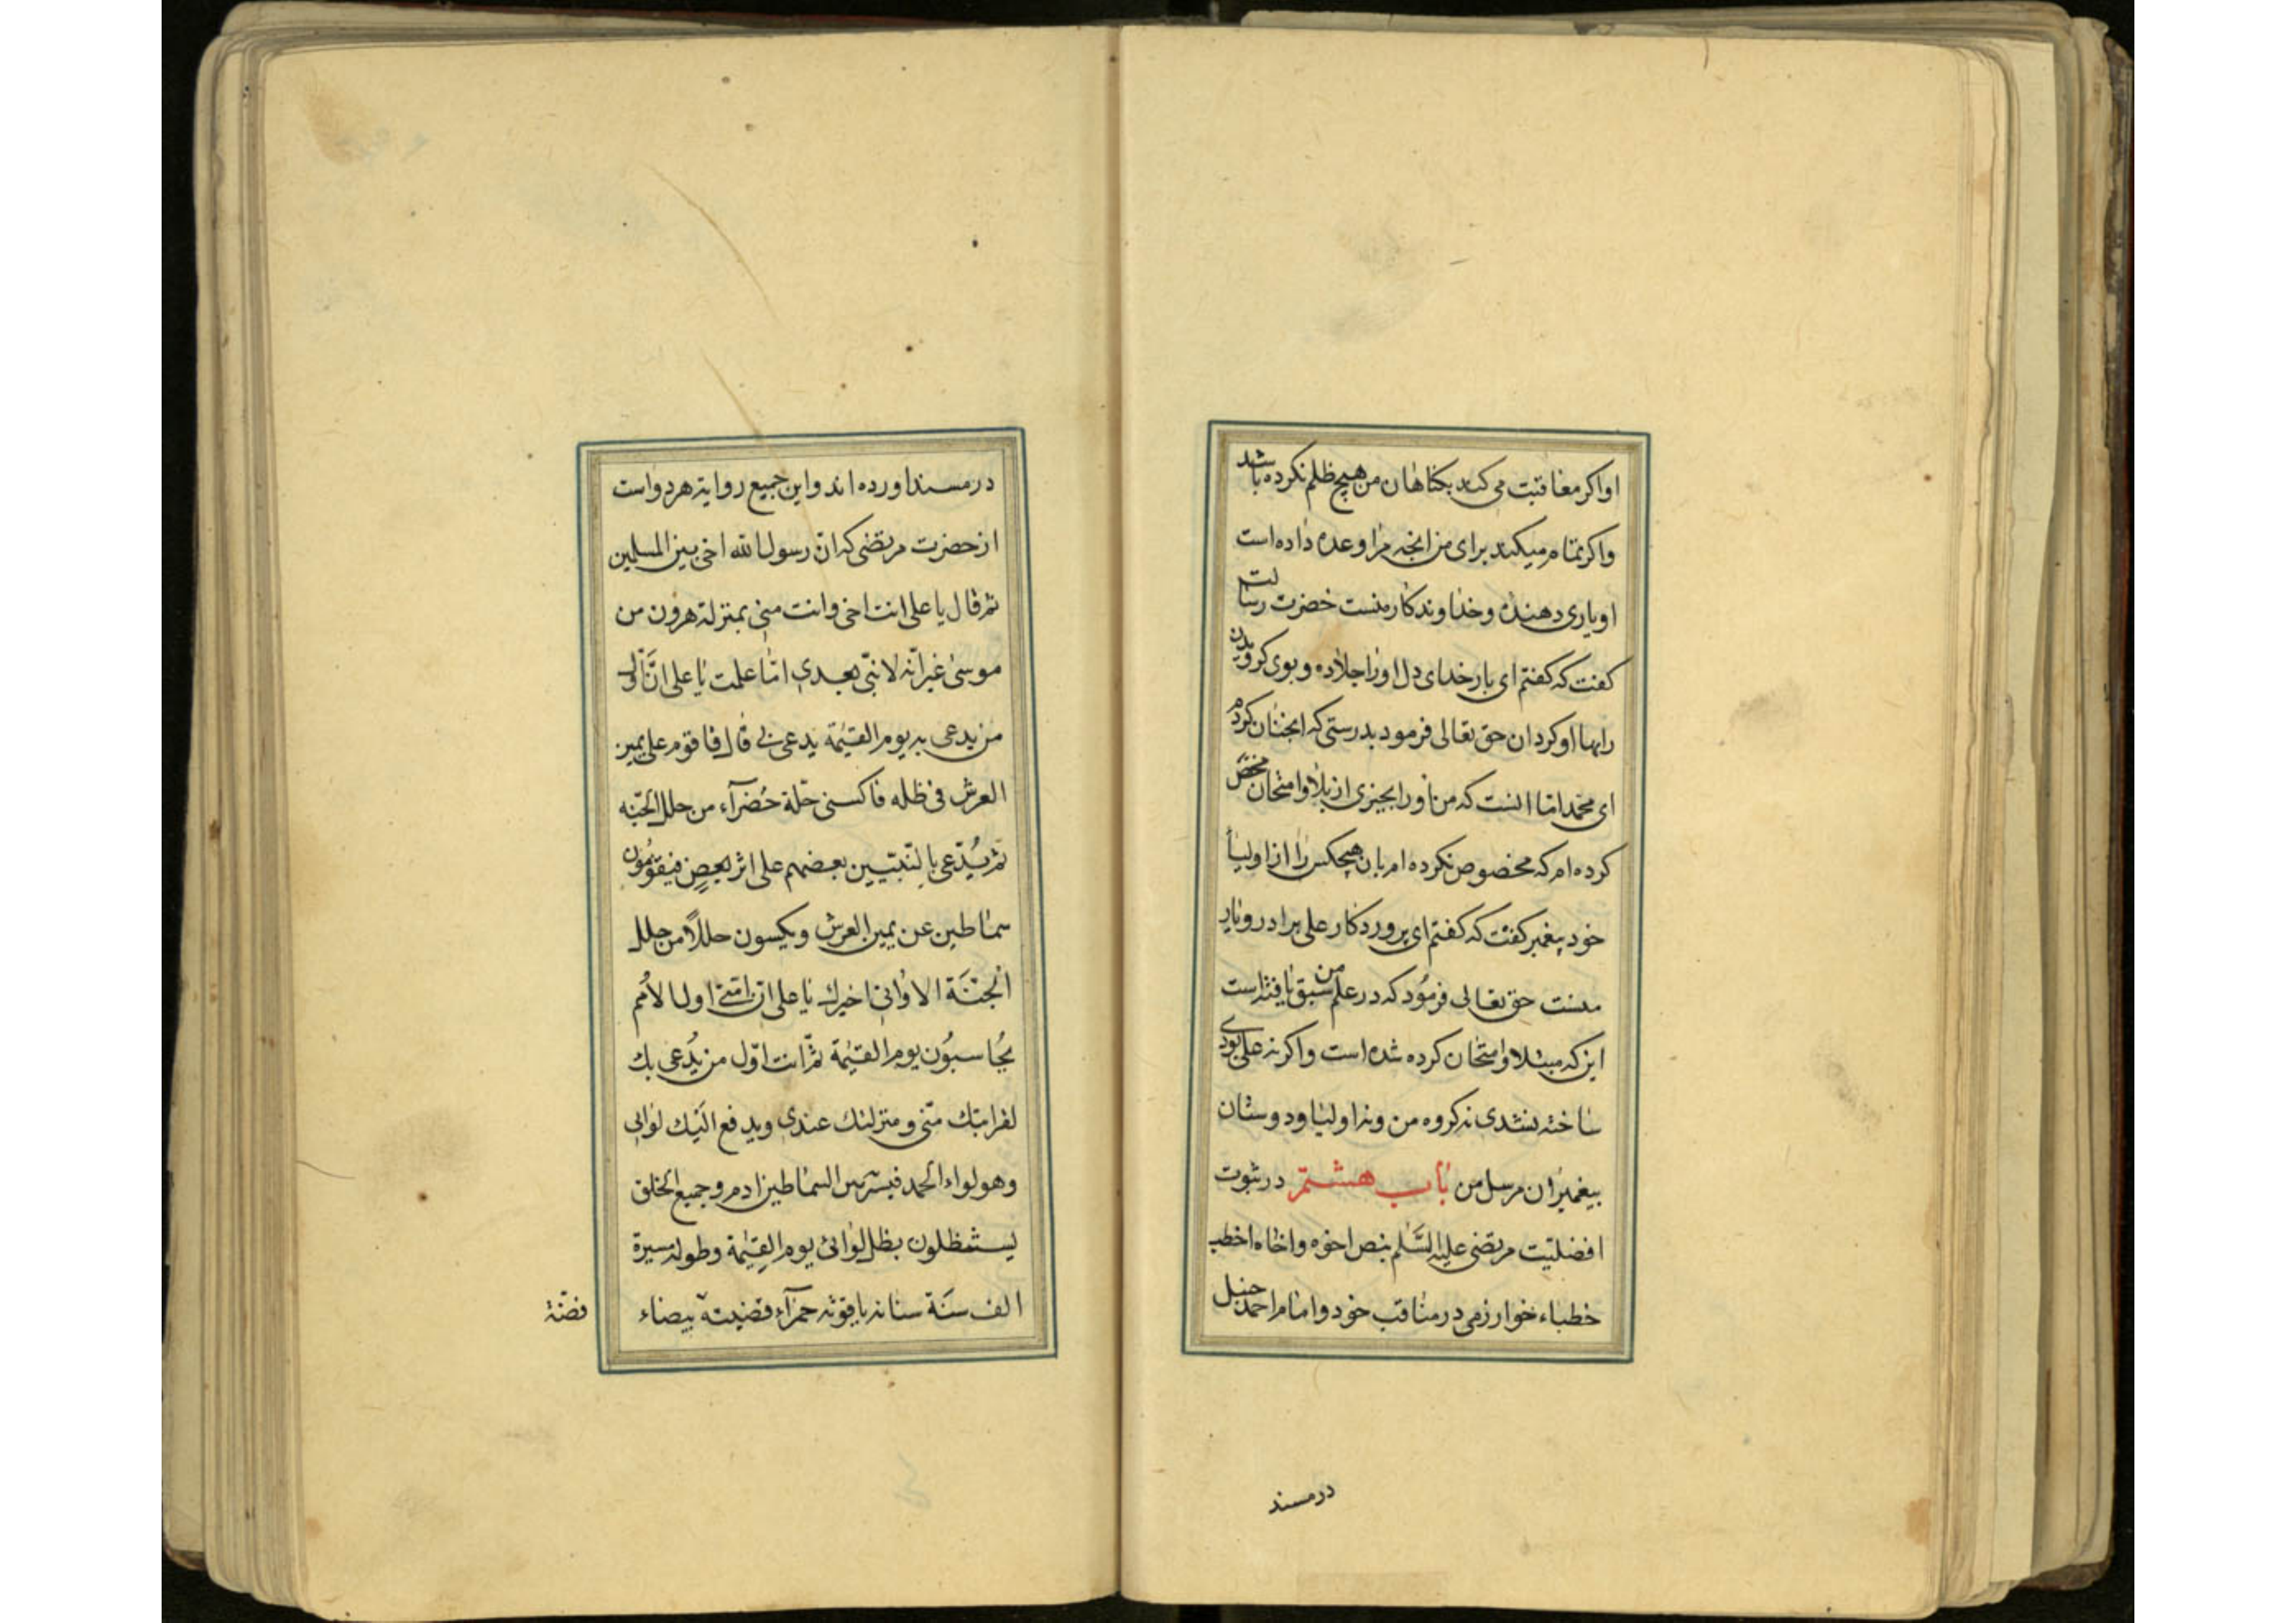 اواکر معاقبت می‌کند بکناهان من هیچ ظلم نکرده باشد
واکر تمام میکند برای من انچه مرا وعده داده است
اویاری دهنده وخداوند کار منست حضرت رسالت
کفت که کفتم ای بار خدای دل اورا جلاده وبوی کرویدن
رابها او کردان حق تعالی فرمود بدرستی که انجنان کردم
ای محمد اما انست که من اورا بجیزی از بلا وامتحان مختص
کرده ام که مخصوص نکرده ام بان هیچکس را از اولیا
خود پیغمبر کفت که کفتم ای پروردکار علی برادر ویار
منست حق تعالی فرمود که در علم من سبق یافته است
این که مبتلا وامتحان کرده شده است واکر نه علی بودی
ساخته نشدی نه کروه من ونه اولیا ودوستان
پیغمبران مرسل من باب هشتم در ثبوت
افضلیت مرتضی علیه السلم بنص اخوه واخاه اخطب
خطباء خوارزمی در مناقب خود وامام احمد حنبل
در مسند
در مسند اورده اند واین جمیع روایة هردو است
از حضرت مرتضی که ان رسول الله اخی بین المسلمین
ثم قال یا علی انت اخی وانت منی بمنزلة هرون من
موسی غیر انه لا نبی بعدی اما علمت یا علی ان اول
من یدعی به یوم القیمة یدعی بی قال فاقوم علی یمین
العرش فی ظله فاکسی حلة خضرآء من حلل الجنه
ثم یدعی بالنبیین بعضهم علی اثر بعض فیقومون
سماطین عن یمین العرش ویکسون حللا من حلل
الجنة الا وانی اخبرك یا علی ان امتی اول الامم
یحاسبون یوم القیمة ثم انت اول من یدعی بك
لقرابتك منی ومنزلتك عندی ویدفع الیك لوائی
وهو لواء الحمد فیسر بین السماطین ادم وجمیع الخلق
یستظلون بظل لوائی یوم القیمة وطوله مسیرة
الف سنة سنانه یاقوته حمرآء قضیبة بیضاء
فضة